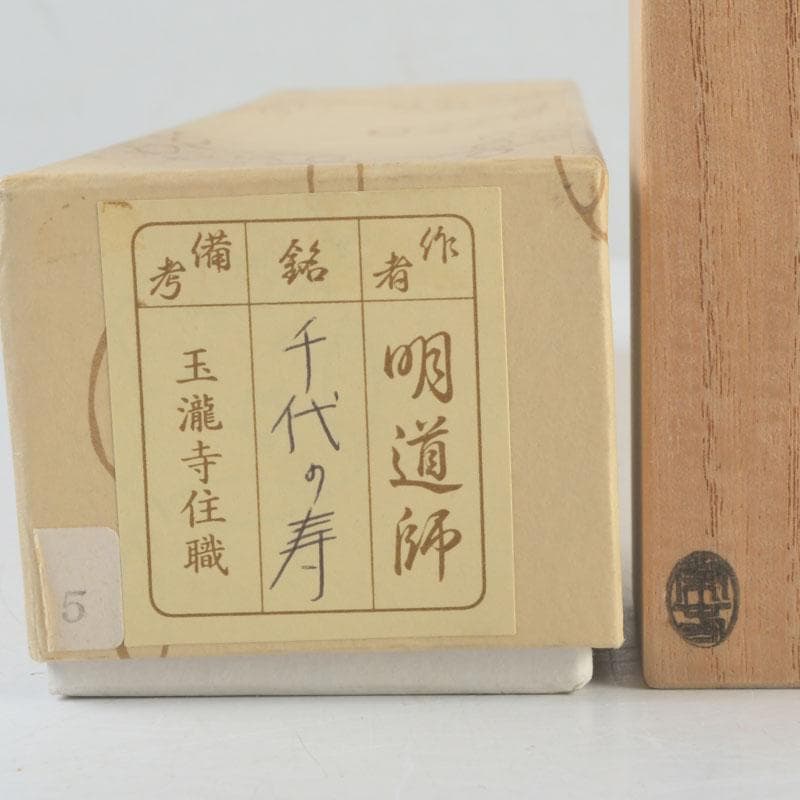 作者
明道師
銘
千代の寿
備考
玉瀧寺住職
5